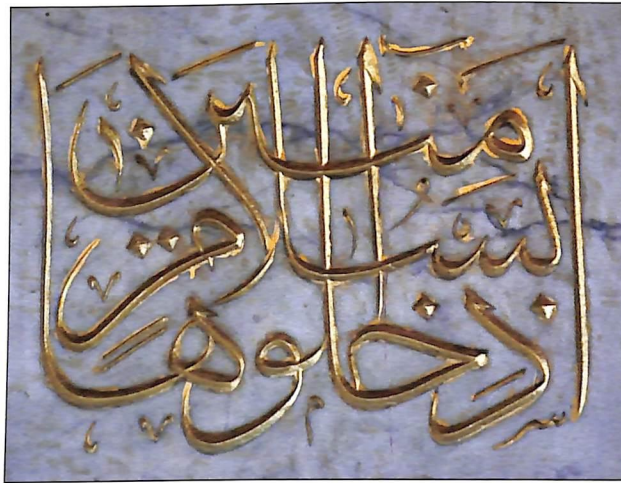 ادخلوها
بسلام
آمنين